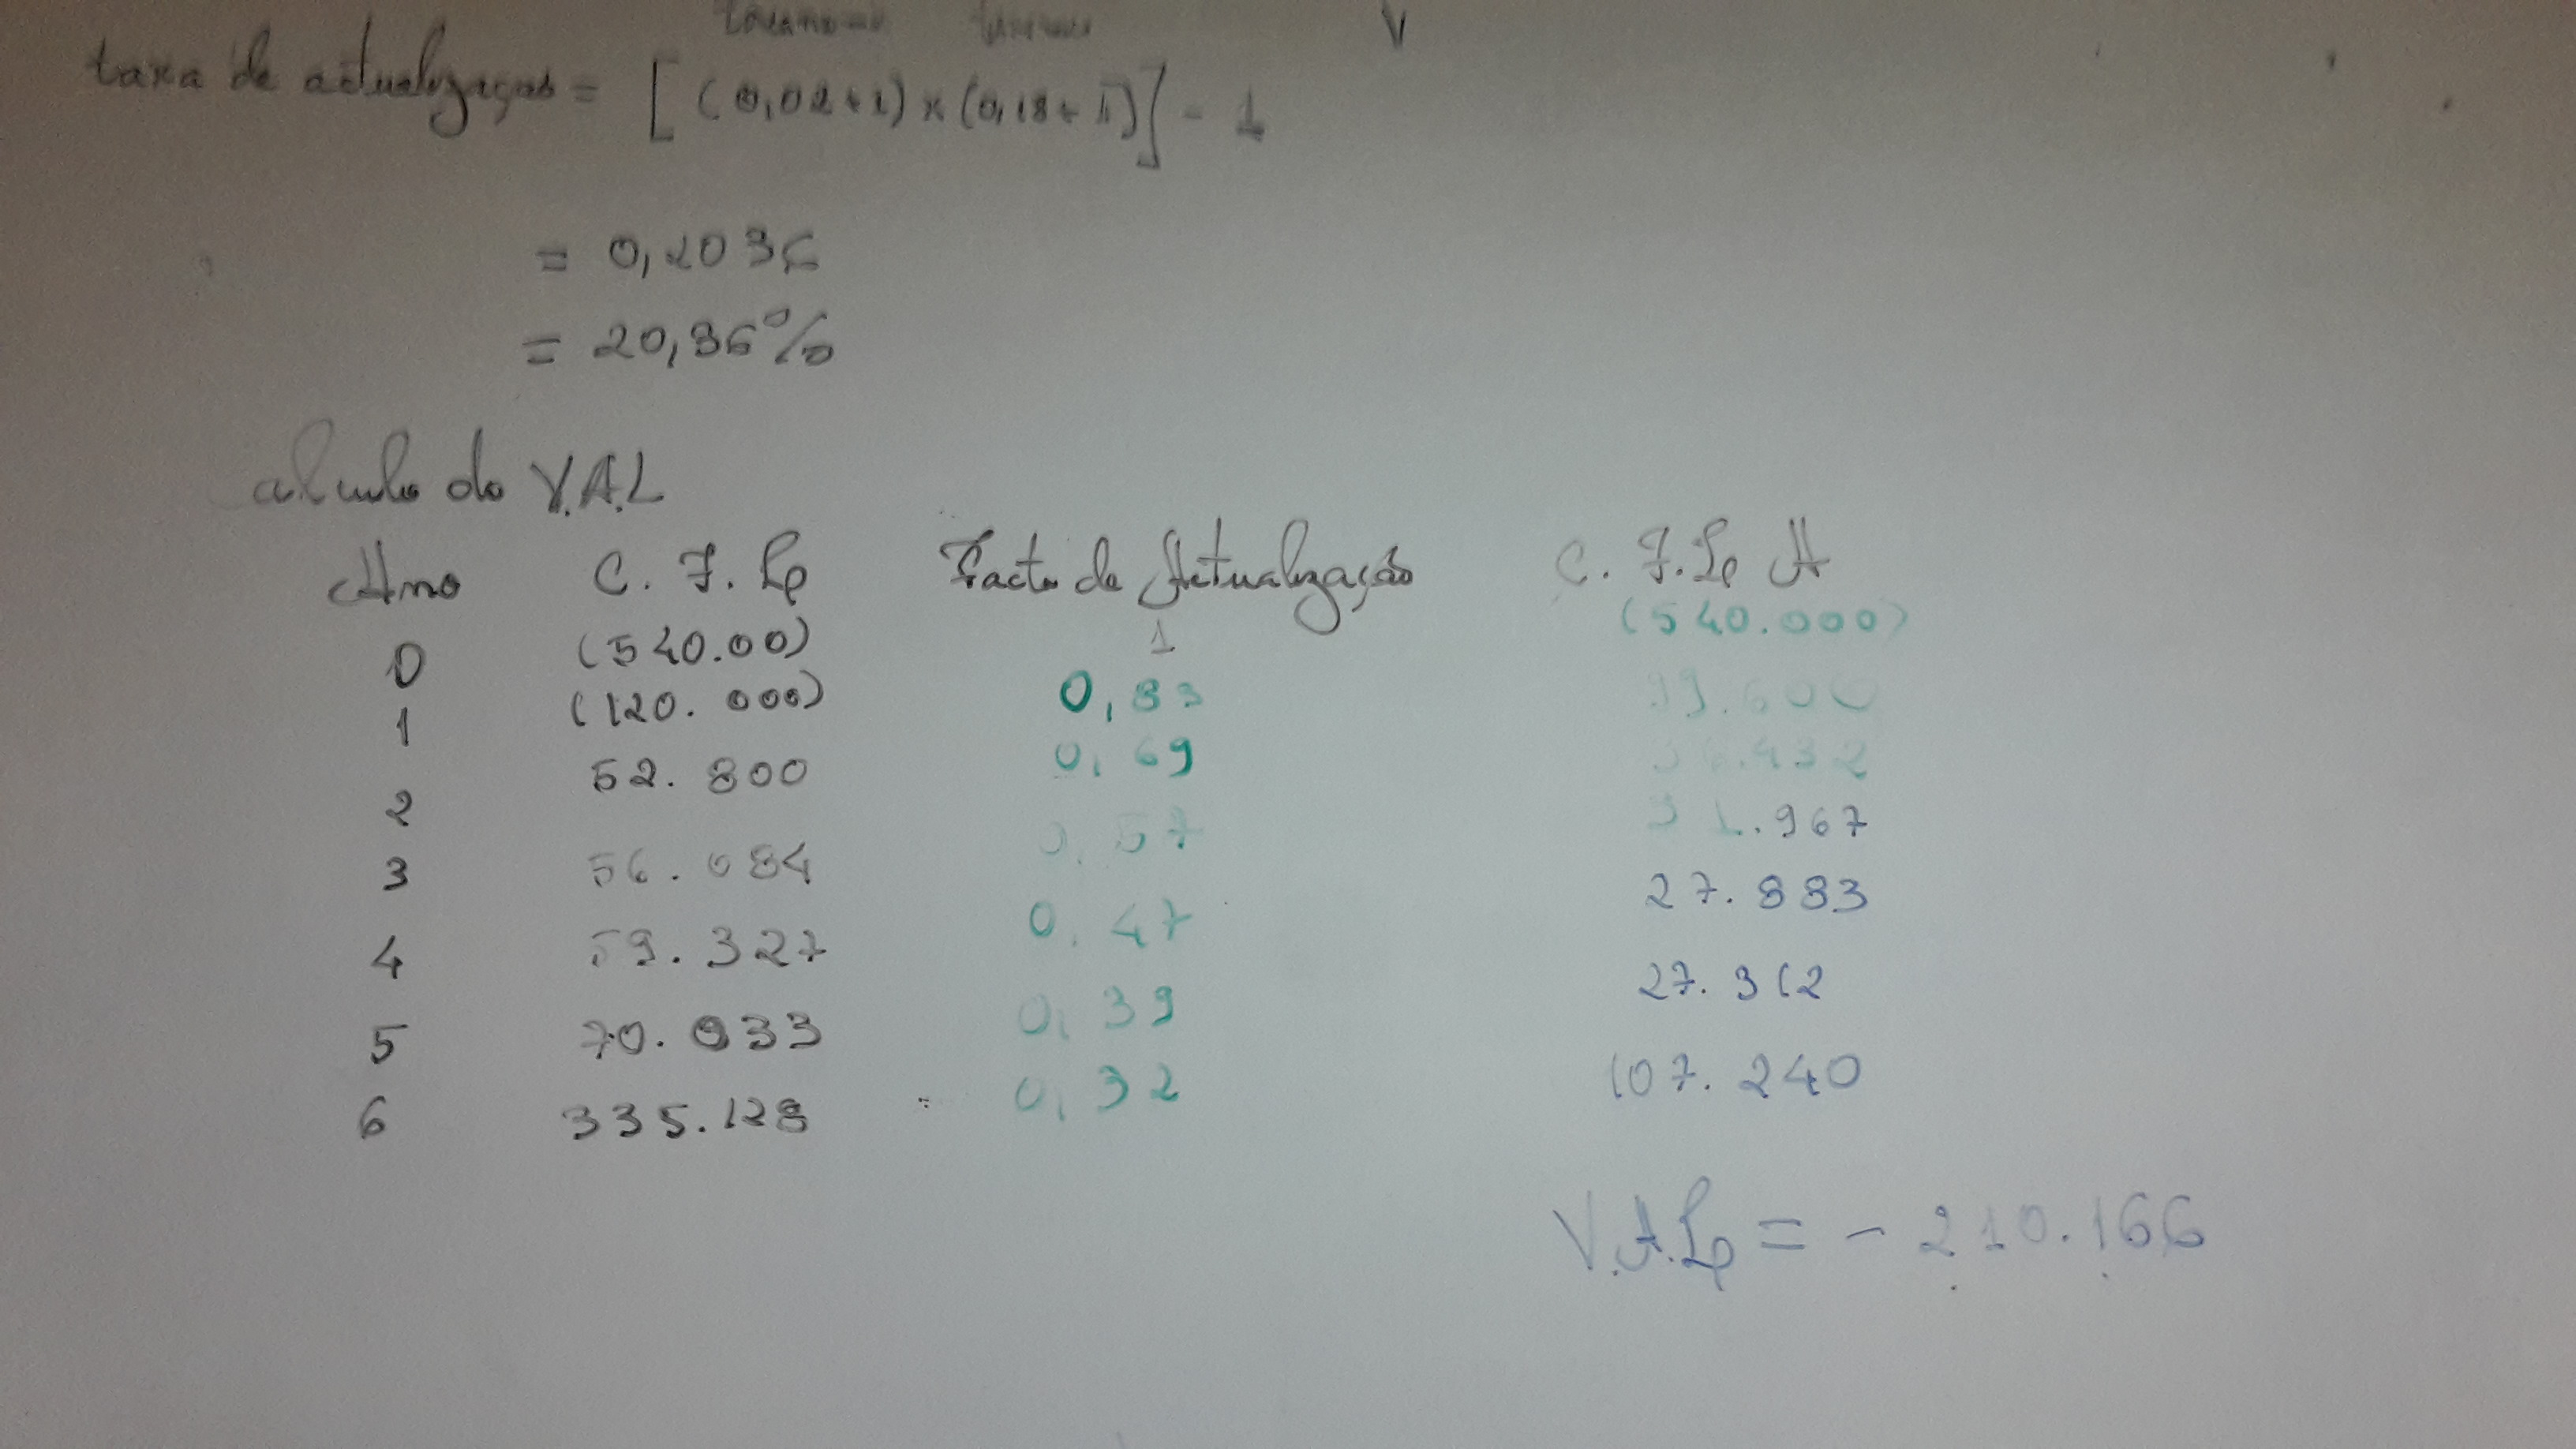 taxa de actualização = [(0,02+1) x (0,18+1)] - 1
= 0,2036
= 20,36%
Calculo do V.A.L
Ano C. F. L Facto de Actualização C. F. L A
0 (540.00) 1 (540.000)
1 (120.000) 0,83 99.600
2 52.800 0,69 36.432
3 56.084 0,57 31.967
4 59.327 0,47 27.883
5 70.033 0,39 27.312
6 335.128 0,32 107.240
V.A.L = - 210.166